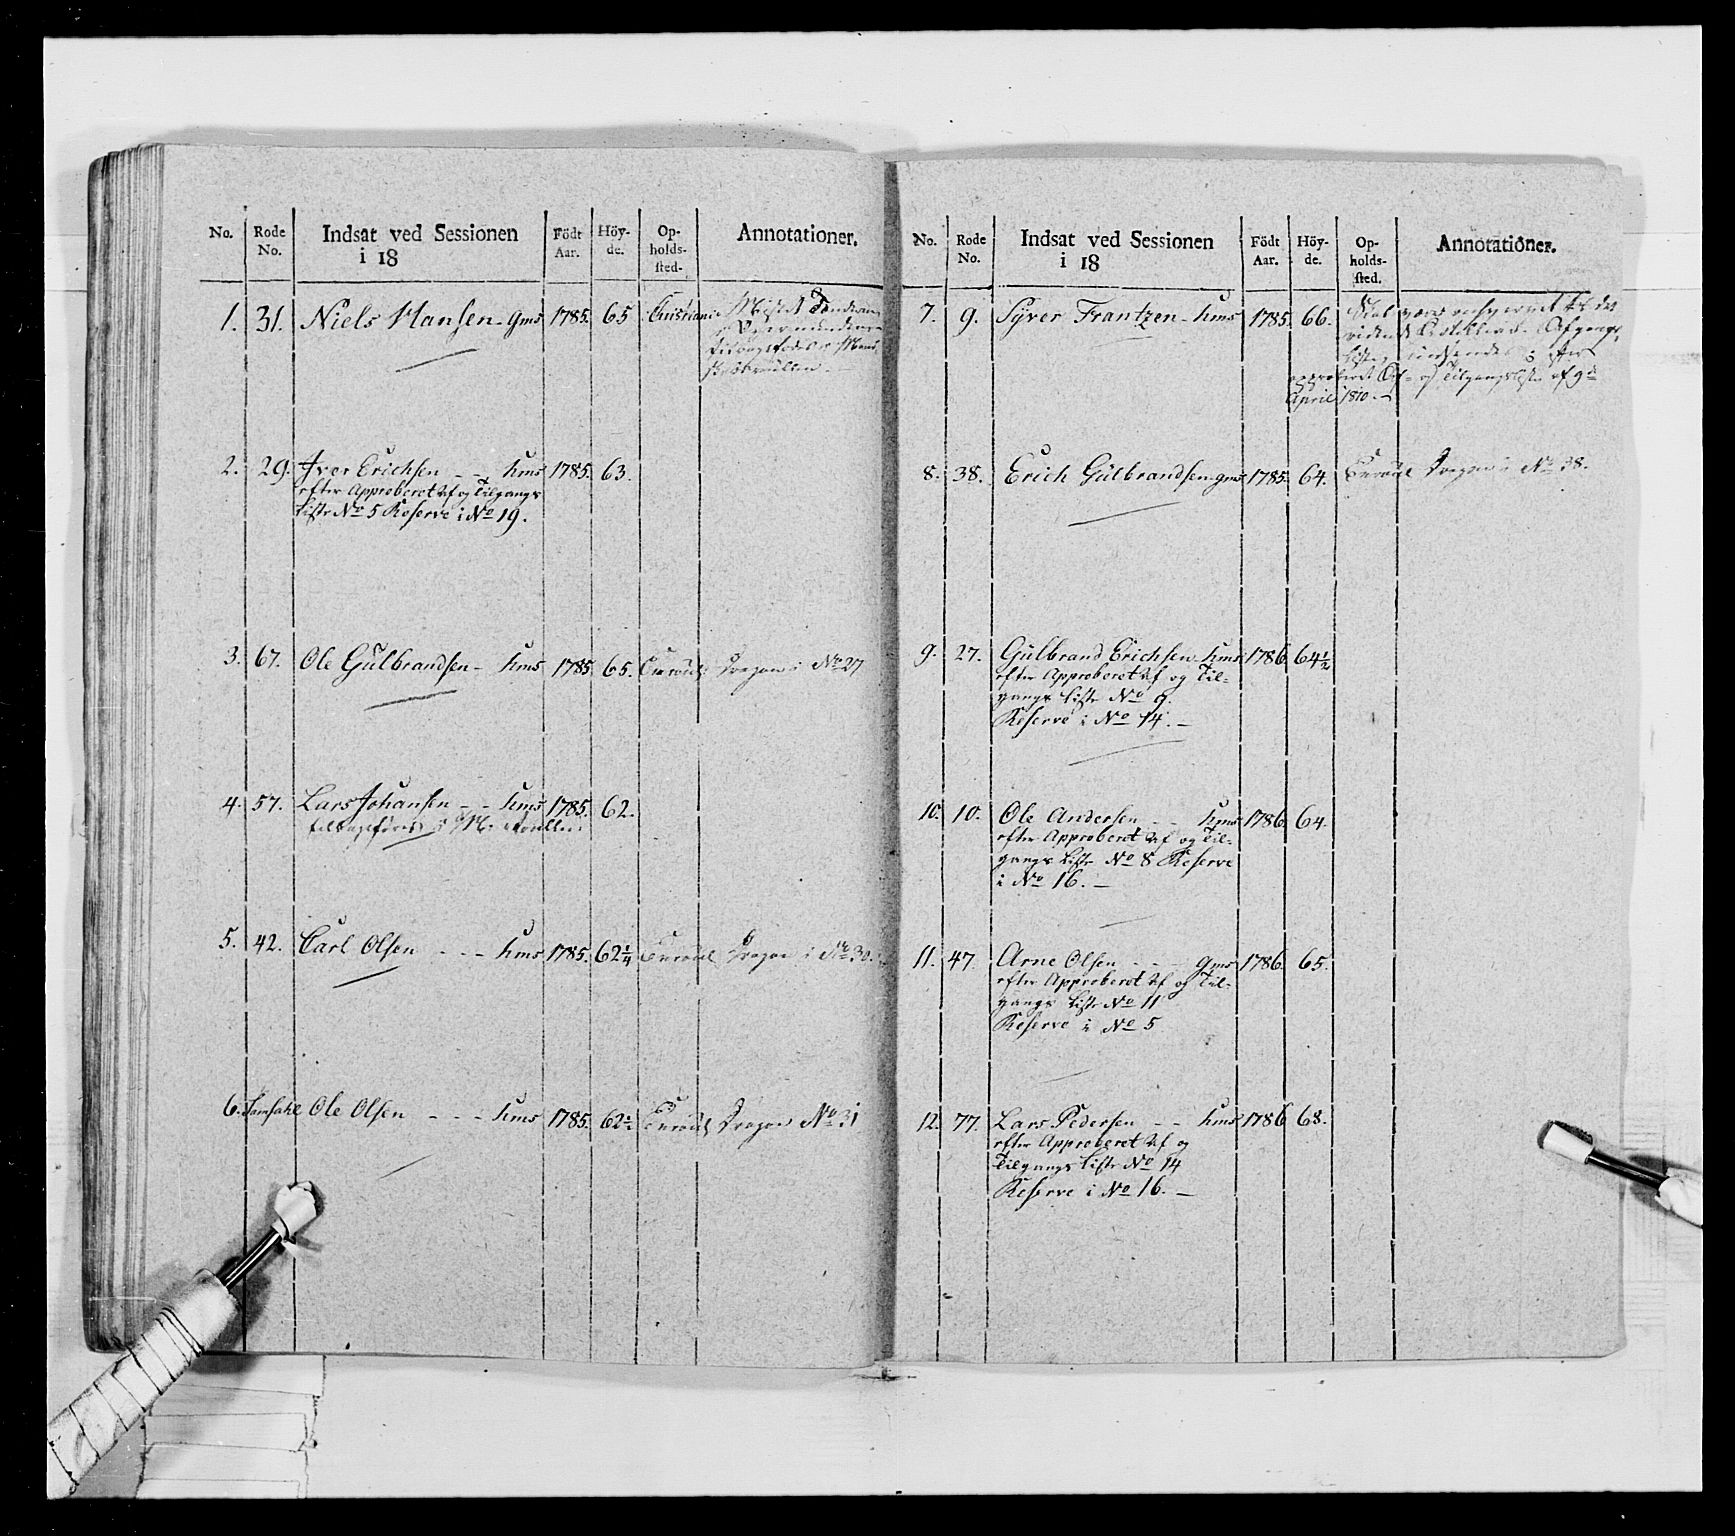 No. Rode No. Indsat ved Sessionen i 18 Födt Aar. Höy-de. Op-holds-sted. Annotationer.
1. 31. Niels Hansen - gms 1785. 65 Christiania Mistet
2. 29. Iver Erichsen - - hms 1785. 63.
efter Approberet Af og Tilgangs
Liste No 5 Reserve i No 19.
3. 67. Ole Gulbrandsen - hms 1785. 65. Dragon i No 27
4. 57. Lars Johansen - - hms 1785. 62.
5. 42. Carl Olsen - - - hms 1785. 62 1/4 Dragon i No 30.
6. Ole Olsen - - - hms 1785. 62 Dragon No 31
No. Rode No. Indsat ved Sessionen i 18 Födt Aar. Höy-de. Op-holds-sted. Annotationer.
7. 9. Syver Frantzen - hms 1785. 66. Skal
Afgangs
Liste
approberet Af- og Tilgangsliste af 9de
April 1810. -
8. 38. Erich Gulbrandsen - gms 1785. 64. Dragon i No 38.
9. 27. Gulbrand Erichsen - hms 1786. 64 1/2
efter Approberet Af og Til-
gangs Liste No 9.
Reserve i No 14. -
10. 10. Ole Andersen - - hms 1786. 64.
efter Approberet Af og Til-
gangs Liste No 8 Reserve
i No 16. -
11. 47. Arne Olsen - - gms 1786. 65.
efter Approberet Af og Til-
gangs Liste No 11
Reserve i No 5
12. 77. Lars Pedersen - - hms 1786 68.
efter Approberet Af og
Tilgangs Liste No 14
Reserve i No 16. -